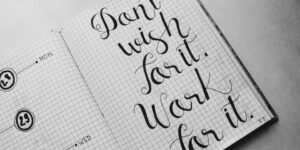 MON
29
29
WED
Dont
wish
for it.
Work
for it.